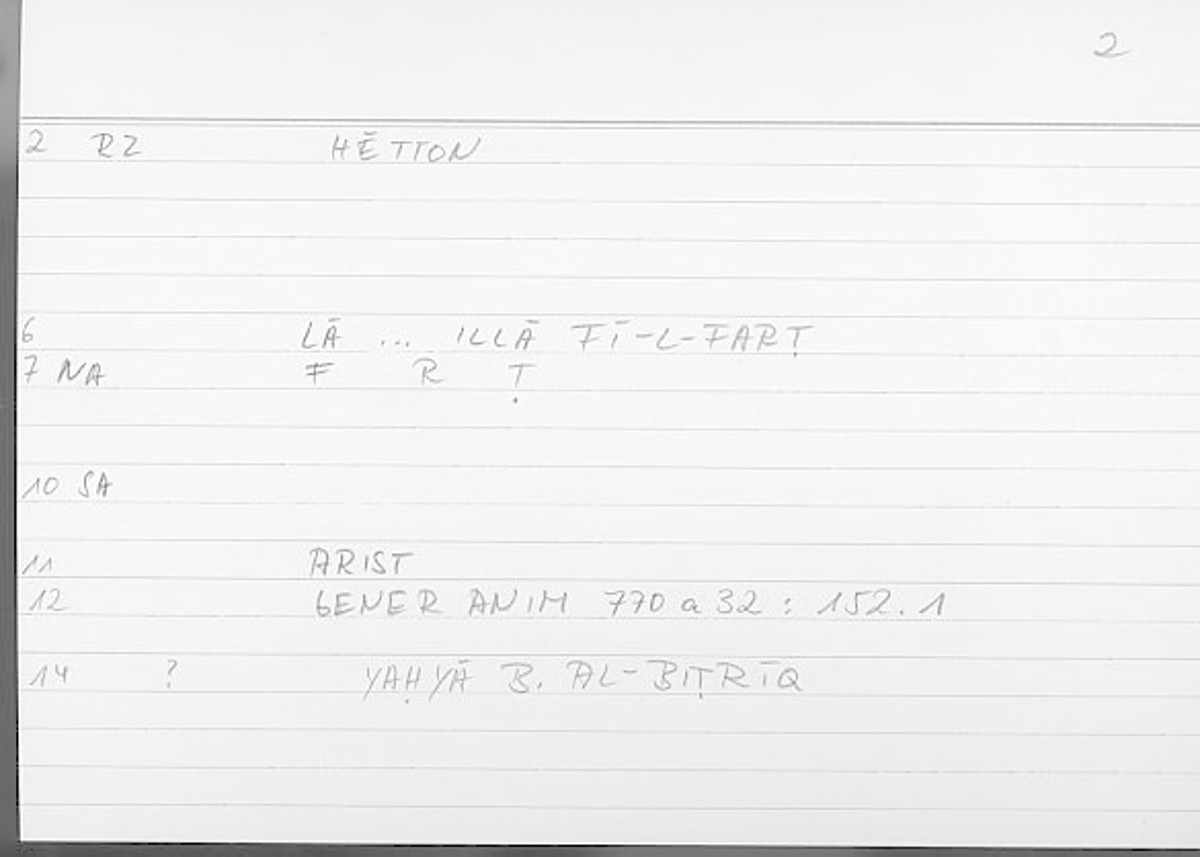 2
2 RZ HĒTTON
6 LĀ ... ILLĀ FĪ-L-FARṬ
7 NA F R Ṭ
10 SA
11 ARIST
12 GENER ANIM 770 a 32 : 152.1
14 ? YAḤYĀ B. AL-BIṬRĪQ